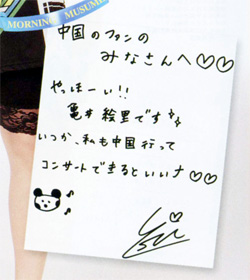 MORNING MUSUME
中国のファンの
みなさんへ♡♡
やっほーい!!
亀井絵里です
いつか、私も中国行って
コンサートできるといいナ♡♡